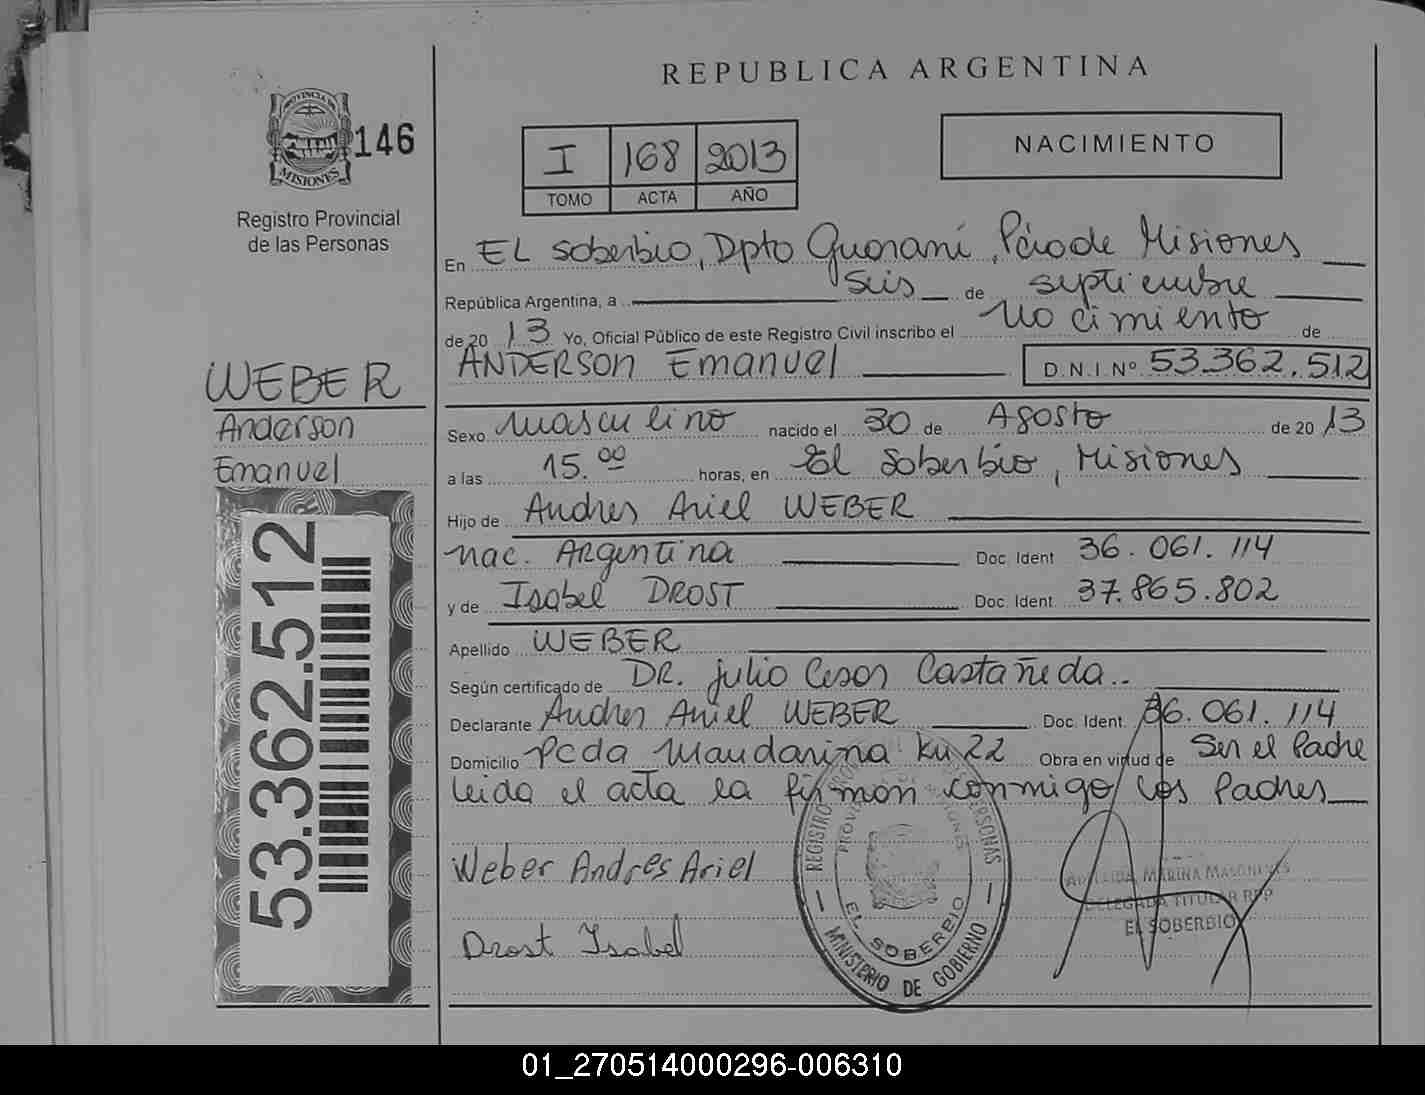 REPUBLICA ARGENTINA
PROVINCIA DE
MISIONES
146
Registro Provincial
de las Personas
I 168 2013
TOMO ACTA AÑO
NACIMIENTO
En EL Soberbio, Dpto Guaraní, Pcia de Misiones
República Argentina, a seis de septiembre
de 20 13 Yo, Oficial Público de este Registro Civil inscribo el Nacimiento de
ANDERSON Emanuel D.N.I. Nº 53.362.512
WEBER
Anderson
Emanuel
53.362.512
Sexo masculino nacido el 30 de Agosto de 20 13
a las 15.00 horas, en El Soberbio, Misiones
Hijo de Andres Ariel WEBER
nac. Argentina Doc. Ident 36.061.114
y de Isabel DROST Doc. Ident. 37.865.802
Apellido WEBER
Según certificado de DR. Julio Cesar Castañeda..
Declarante Andres Ariel WEBER Doc. Ident. 36.061.114
Domicilio Pcda Mandarina km 22 Obra en virtud de Ser el Padre
leida el acta la firman conmigo los Padres
Weber Andres Ariel
Drost Isabel
REGISTRO PROVINCIAL DE LAS PERSONAS
PROVINCIA DE MISIONES
EL SOBERBIO
MINISTERIO DE GOBIERNO
MARINA
DELEGADA TITULAR RPP
EL SOBERBIO
01_270514000296-006310